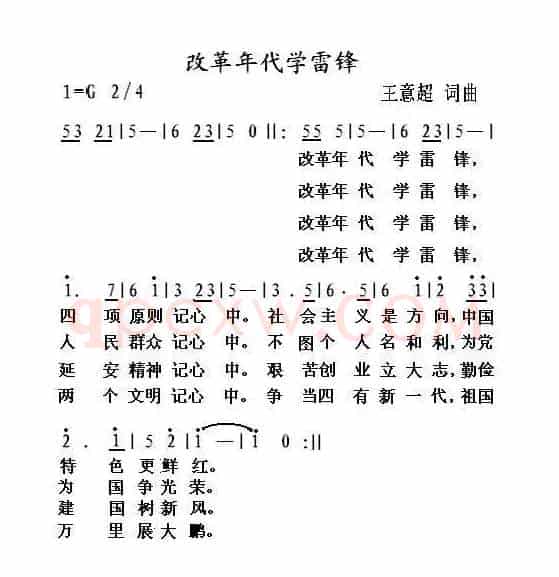 改革年代学雷锋
1=G 2/4 王意超 词曲
53 21|5—|6 23|5 0 ||: 55 5|5—|6 23|5—|
改革年 代 学 雷 锋，
改革年 代 学 雷 锋，
改革年 代 学 雷 锋，
改革年 代 学 雷 锋，
1. 7|6 1|3 23|5—|3. 5|6. 5|6 1|2 33|
四 项 原则 记心 中。社 会主 义 是方 向，中国
人 民 群众 记心 中。不 图个 人 名和 利，为党
延 安 精神 记心 中。艰 苦创 业 立大 志，勤俭
两 个 文明 记心 中。争 当四 有 新一 代，祖国
2. 1|5 2|1 —|1 0 :||
特 色 更鲜 红。
为 国 争光 荣。
建 国 树新 风。
万 里 展大 鹏。